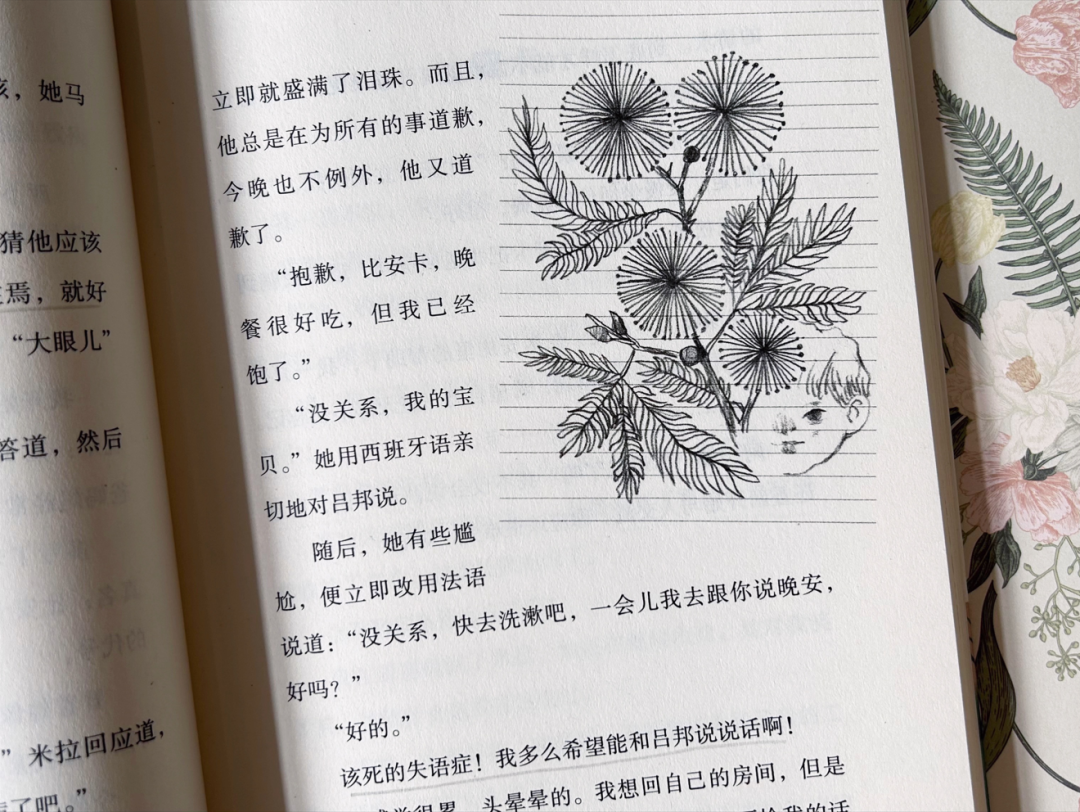 孩，她马
猜他应该
焉，就好
“大眼儿”
答道，然后
”米拉回应道，
了吧。”
立即就盛满了泪珠。而且，
他总是在为所有的事道歉，
今晚也不例外，他又道
歉了。
“抱歉，比安卡，晚
餐很好吃，但我已经
饱了。”
“没关系，我的宝
贝。”她用西班牙语亲
切地对吕邦说。
随后，她有些尴
尬，便立即改用法语
说道：“没关系，快去洗漱吧，一会儿我去跟你说晚安，
好吗？”
“好的。”
该死的失语症！我多么希望能和吕邦说说话啊！
很累，头晕晕的。我想回自己的房间，但是